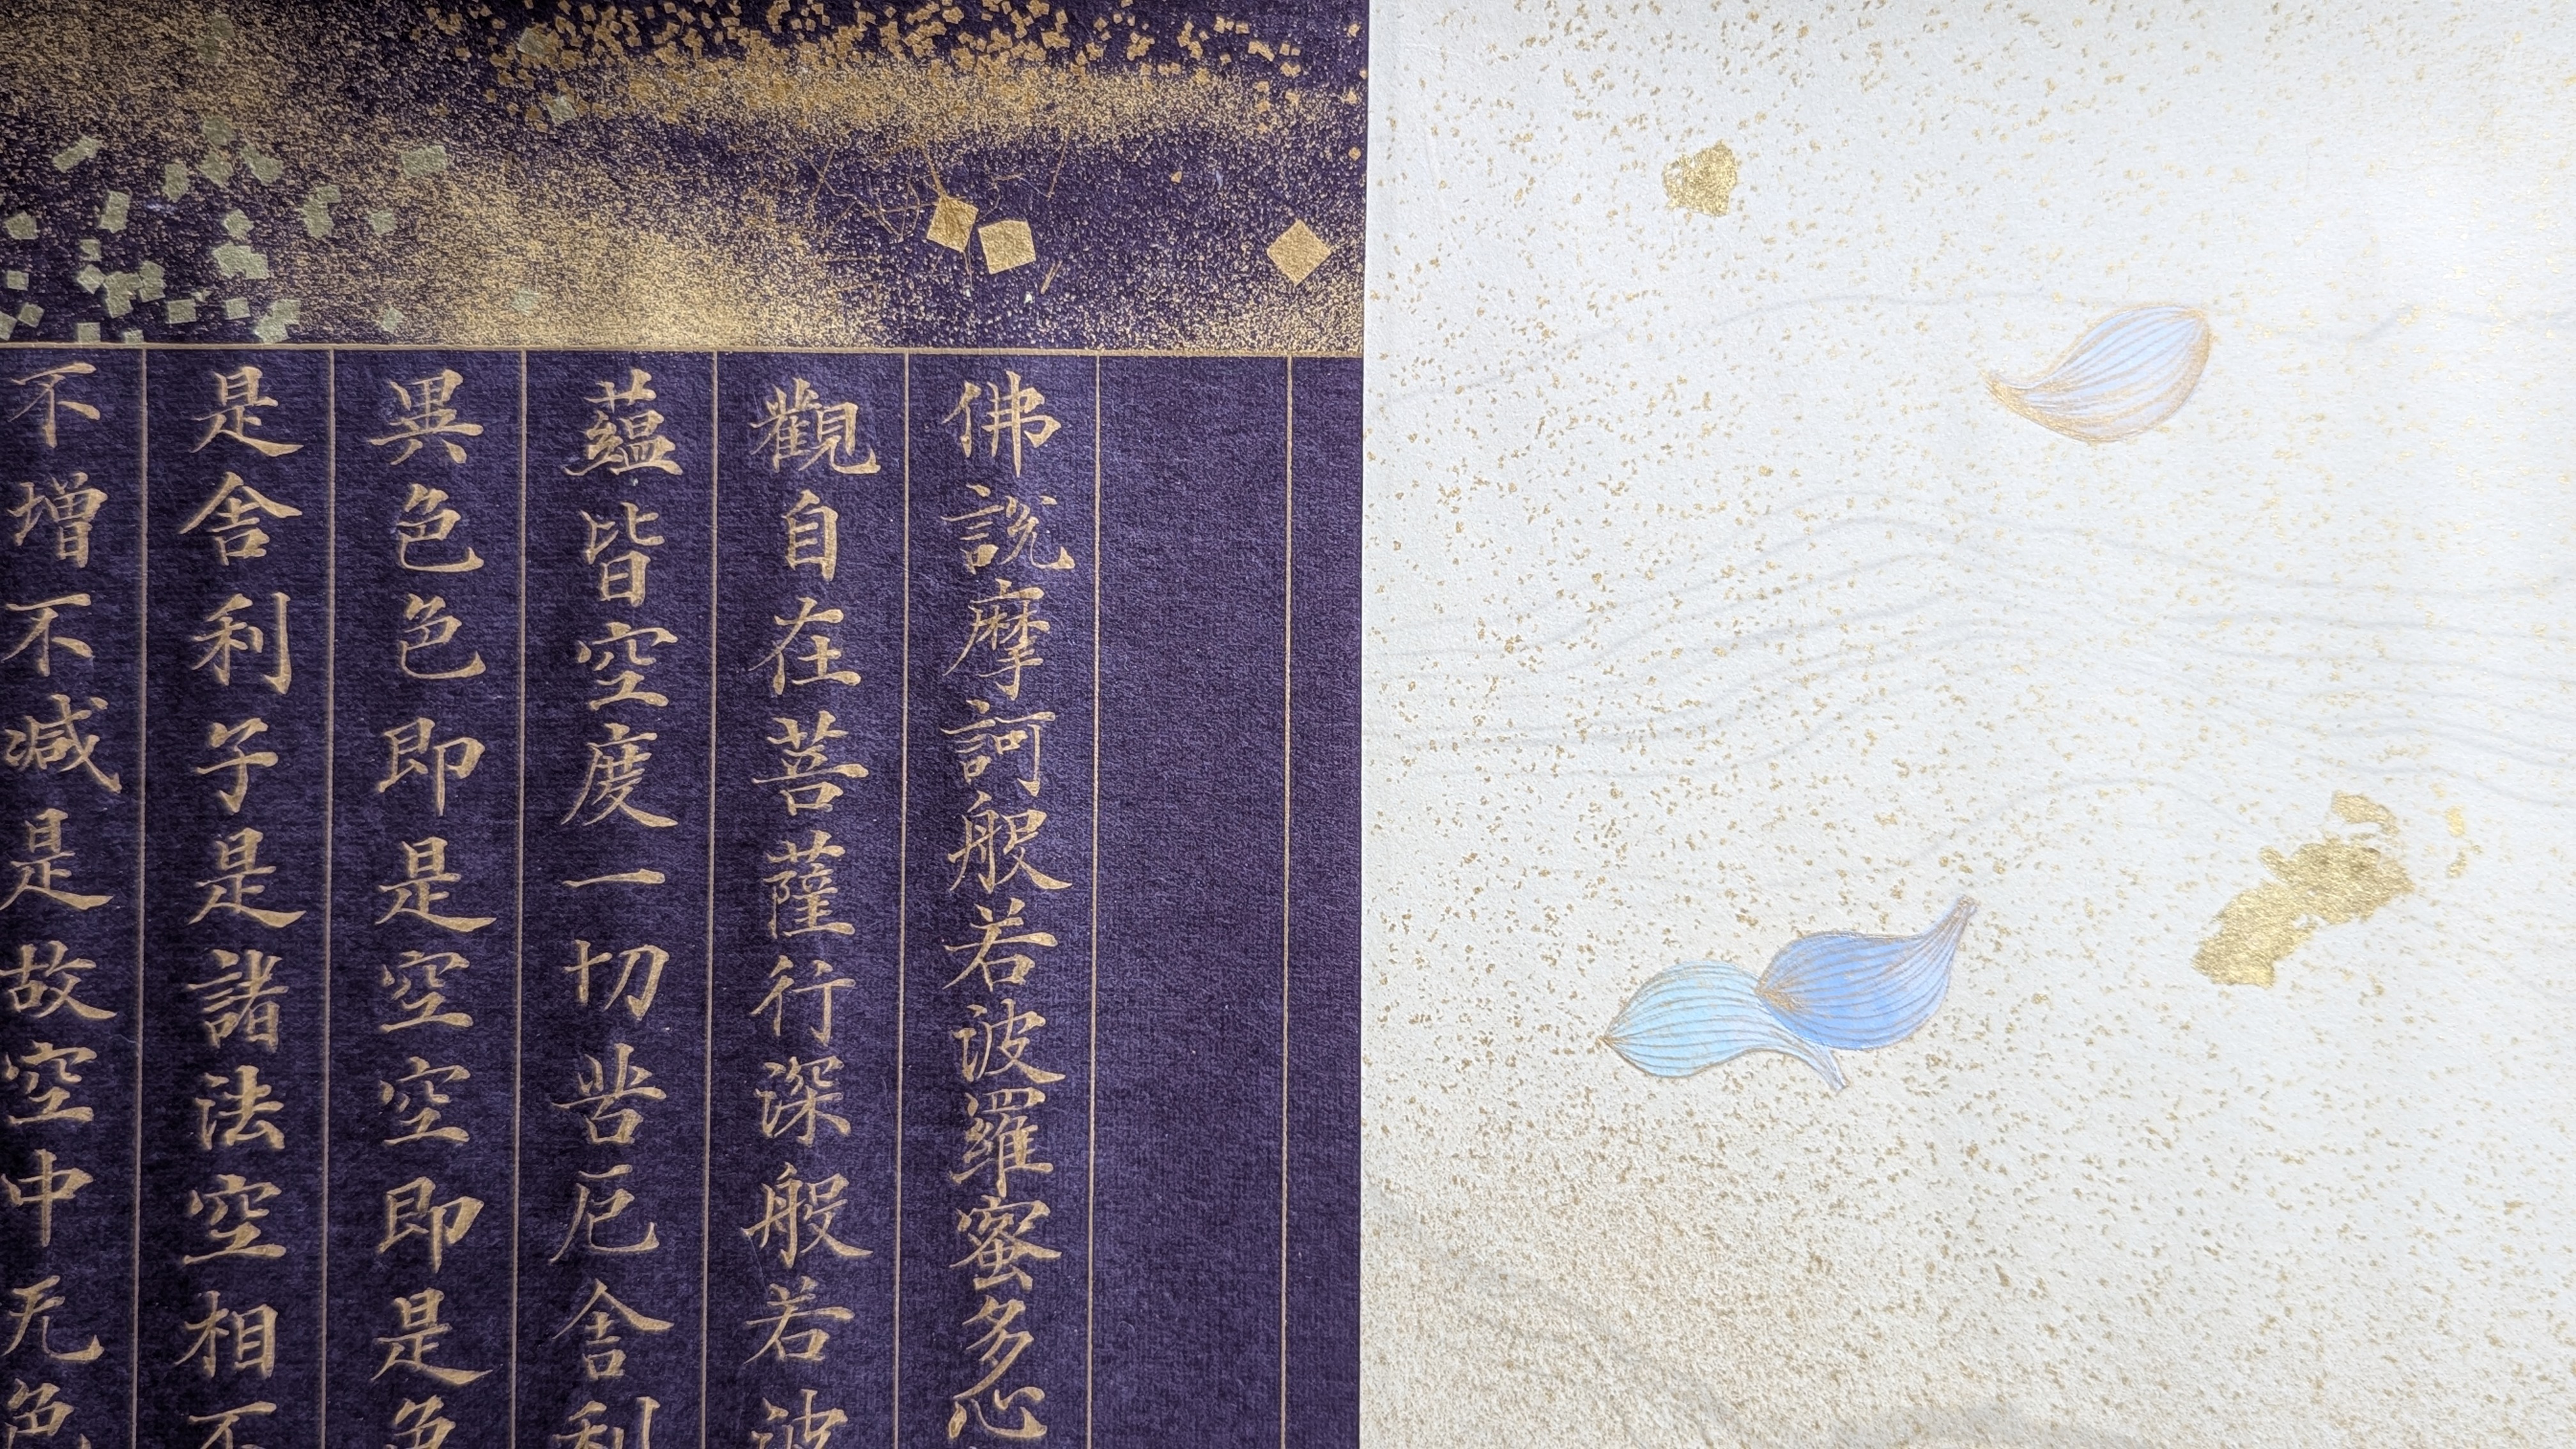 佛說摩訶般若波羅蜜多心
觀自在菩薩行深般若波
蘊皆空度一切苦厄舍利
異色色即是空空即是色
是舍利子是諸法空相不
不增不减是故空中无色